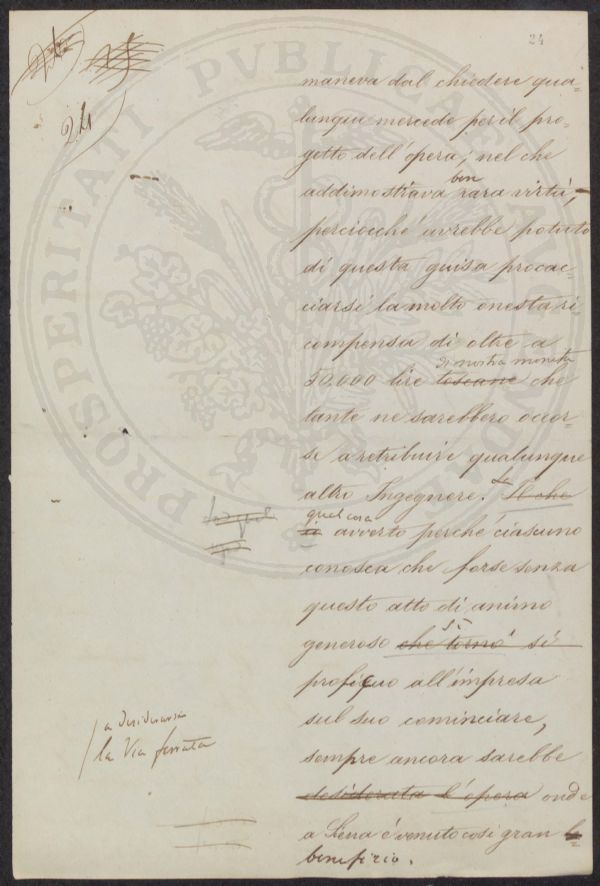 24
24
maneva dal chiedere qua-
lunque mercede per il pro-
getto dell'opera; nel che
ben
addimostrava rara virtù,
perciocché avrebbe potuto
di questa guisa procac-
ciarsi la molto onesta ri-
compensa di oltre a
di nostra moneta
50,000 lire toscane che
tante ne sarebbero occor-
se a retribuire qualunque
altro Ingegnere. La Il che
qual cosa
avverto perché ciascuno
conosca che forse senza
questo atto di animo
sì
generoso che tornò sì
proficuo all'impresa
sul suo cominciare,
a desiderarsi
la Via ferrata
sempre ancora sarebbe
desiderata l'opera onde
a Siena è venuto così gran
beneficio.
PROSPERITATI PVBLICAE AVGENDAE